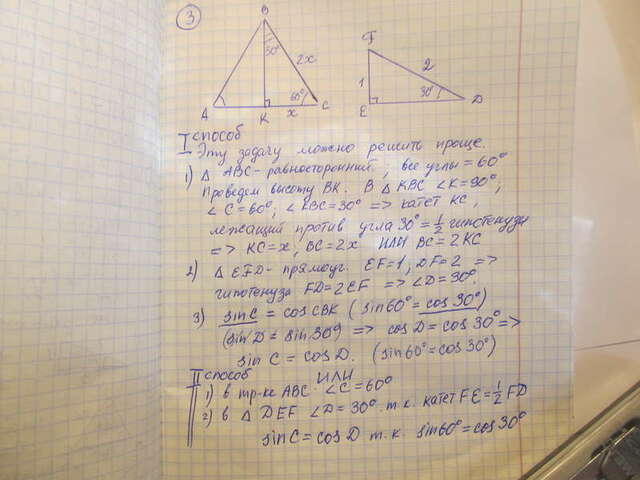 3
B
F
30°
2x
2
1
60°
30°
A
K
x
C
E
D
I способ
Эту задачу можно решить проще.
1) Δ ABC - равносторонний, все углы = 60°
Проведем высоту BK. В Δ KBC ∠K = 90°,
∠C = 60°, ∠KBC = 30° => катет KC,
лежащий против угла 30° = 1/2 гипотенузы
=> KC = x, BC = 2x ИЛИ BC = 2KC
2) Δ EFD - прямоуг. EF = 1, DF = 2 =>
гипотенуза FD = 2EF => ∠D = 30°.
3) sin C = cos CBK (sin 60° = cos 30°)
(sin D = sin 30°) => cos D = cos 30° =>
sin C = cos D. (sin 60° = cos 30°)
II способ ИЛИ
1) в тр-ке ABC ∠C = 60°
2) в Δ DEF ∠D = 30° т.к. катет FE = 1/2 FD
sin C = cos D т.к. sin 60° = cos 30°